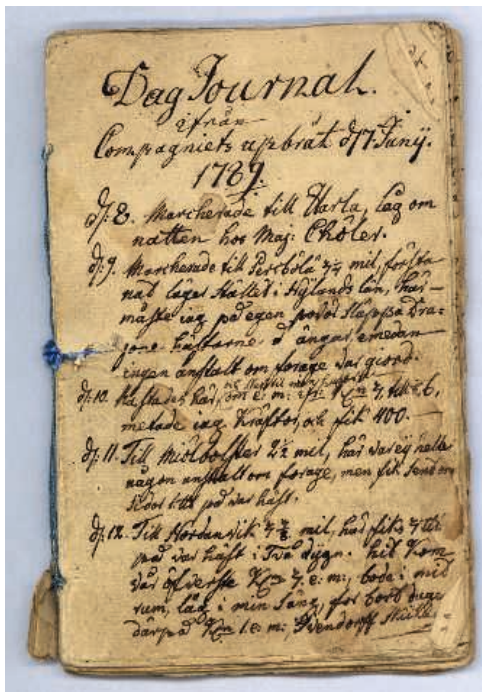 Dag Journal.
ifrån
Compagniets upbråt d. 7. Junij.
1789.
d. 8. Marcherade till Harla, låg om
natten hos Maj: Chöler.
d. 9. Marcherade till Persböle mil, första
nat läger Stället i Nylands län, här
måste jag på egen släppa Dra=
gone hästarne i ängar, emedan
ingen anstalt om forage var giord.
d. 10. här, e: m:
metade jag Kräftor, och fik 400.
d. 11. Till 2½ mil, här var ej heller
någon anstalt om forage, men fik
på var häst.
d. 12. Till Nordanvik mil, här fiks
på var häst i Två dygn. hid Kom
vår öfverste e: m:, bode i mit
rum, låg i min Säng, for bort
därpå e: m: